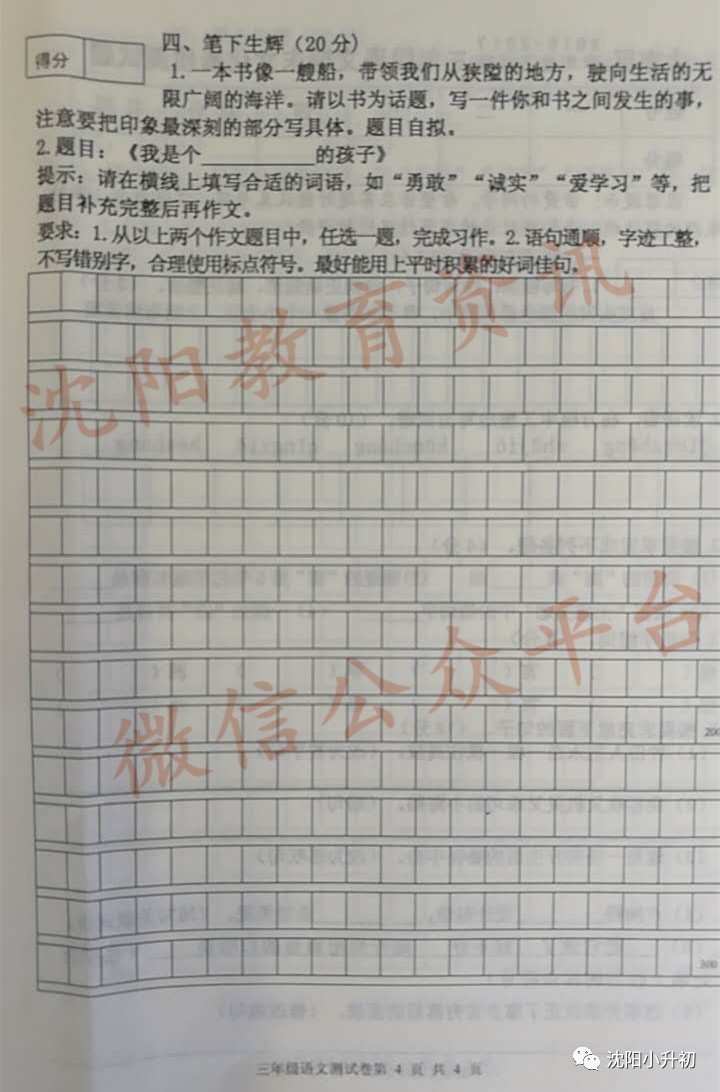 得分
四、笔下生辉(20分)
1.一本书像一艘船，带领我们从狭隘的地方，驶向生活的无
限广阔的海洋。请以书为话题，写一件你和书之间发生的事，
注意要把印象最深刻的部分写具体。题目自拟。
2.题目：《我是个__________的孩子》
提示：请在横线上填写合适的词语，如“勇敢”“诚实”“爱学习”等，把
题目补充完整后再作文。
要求：1.从以上两个作文题目中，任选一题，完成习作。2.语句通顺，字迹工整，
不写错别字，合理使用标点符号。最好能用上平时积累的好词佳句。
沈阳教育资讯
微信公众平台
200
300
三年级语文测试卷第 4 页 共 4 页
沈阳小升初